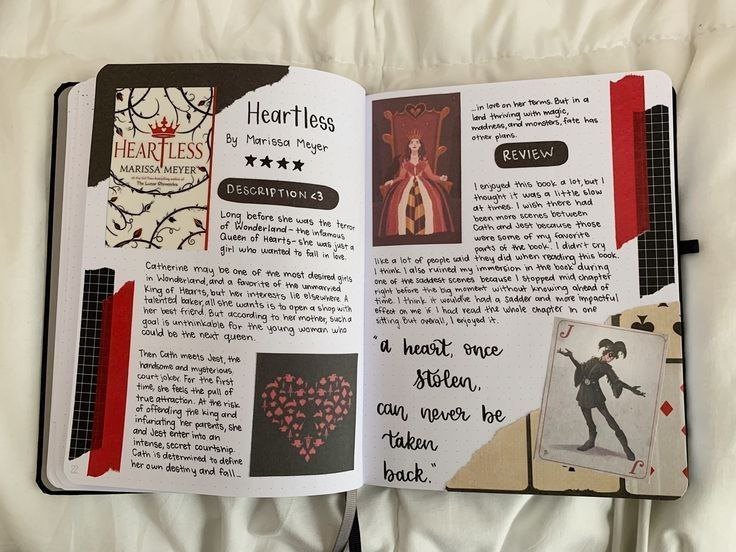 HEARTLESS
MARISSA MEYER
Heartless
By Marissa Meyer
DESCRIPTION <3
Long before she was the terror
of Wonderland - the infamous
Queen of Hearts - she was just a
girl who wanted to fall in love.
Catherine may be one of the most desired girls
in Wonderland, and a favorite of the unmarried
King of Hearts, but her interests lie elsewhere. A
talented baker, all she wants is to open a shop with
her best friend. But according to her mother, such a
goal is unthinkable for the young woman who
could be the next queen.
Then Cath meets Jest, the
handsome and mysterious
court joker. For the first
time, she feels the pull of
true attraction. At the risk
of offending the king and
infuriating her parents, she
and Jest enter into an
intense, secret courtship.
Cath is determined to define
her own destiny and fall...
22
...in love on her terms. But in a
land thriving with magic,
madness, and monsters, fate has
other plans.
REVIEW
I enjoyed this book a lot, but I
thought it was a little slow
at times. I wish there had
been more scenes between
Cath and Jest because those
were some of my favorite
parts of the book. I didn't cry
like a lot of people said they did when reading this book.
I think I also ruined my immersion in the book during
one of the saddest scenes because I stopped mid chapter
right before the big moment without knowing ahead of
time. I think it would've had a sadder and more impactful
effect on me if I had read the whole chapter in one
sitting but overall, I enjoyed it.
"a heart, once
stolen,
can never be
taken
back."
J
J